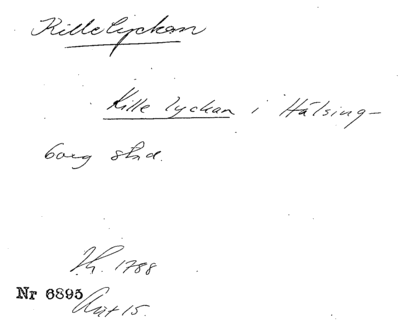 Killelyckan
Kille lyckan i Hälsing-
borg stad.
Jh. 1788
Nr 6895
Akt 15.